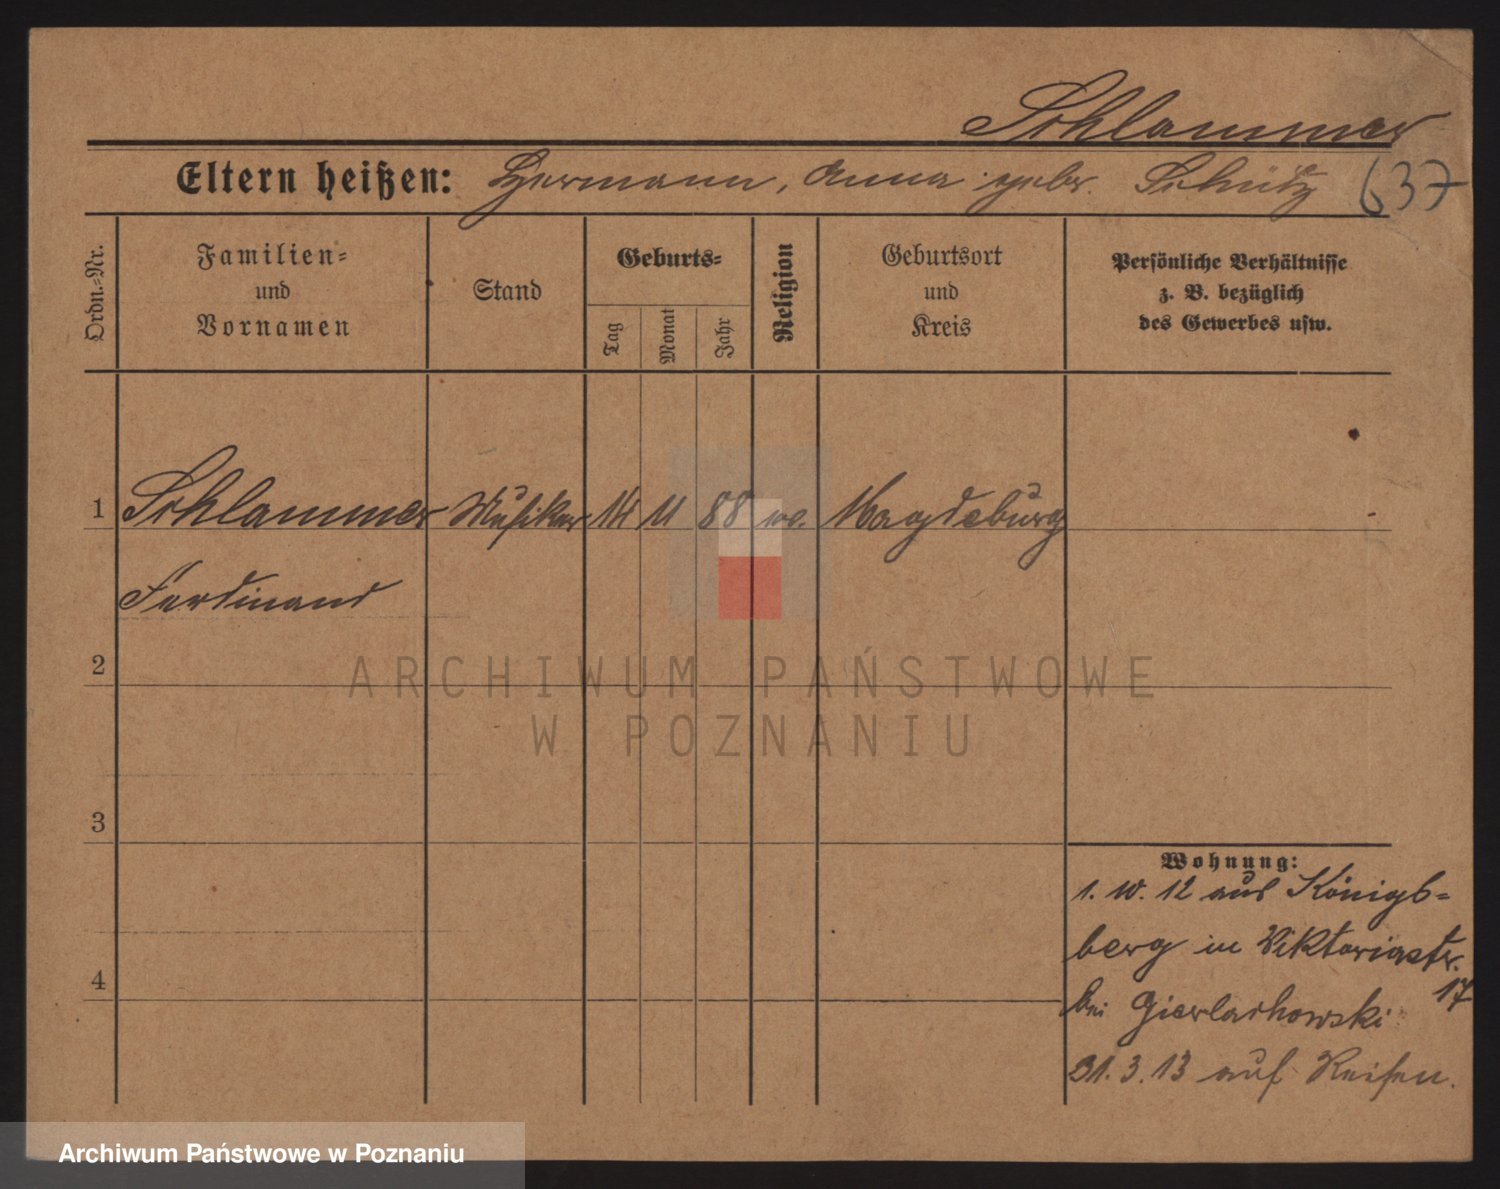 Schlammer
Eltern heißen: Hermann, Anna gebr. Schütz 637
Ordn.-Nr.
Familien-
und
Vornamen
Stand
Geburts-
Tag
Monat
Jahr
Religion
Geburtsort
und
Kreis
Persönliche Verhältnisse
z. B. bezüglich
des Gewerbes usw.
1 Schlammer Musiker 14 11 88 Magdeburg
Ferdinand
2
ARCHIWUM PAŃSTWOWE
W POZNANIU
3
Wohnung:
1. 10. 12 aus Königs-
berg in Viktoriastr.
17
bei Gierlachowski
31. 3. 13 auf Reisen.
4
Archiwum Państwowe w Poznaniu